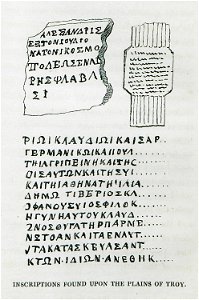 ΑΛΕΞΑΝΔΡΙΣ
ΣΞΤΟΝΣΟΥΛΡΟ
ΚΑΤΟΝΙΚΟΣΜΟ
ΤΟΔΕΠΣΕΝΝΑΣ
ΡΗΣΦΛΑΒΛ
ΣΙ
ΡΙΩΙΚΛΑΥΔΙΩΙΚΑΙΣΑΡ
ΓΕΡΜΑΝΙΚΩΙΚΑΙΙΟΥΛ
ΤΗΙΑΓΡΙΠΕΙΝΗΚΑΙΤΗΣ
ΟΙΣΑΥΤΩΝΚΑΙΤΗΣΥΙ
ΚΑΙΤΗΙΑΘΗΝΑΤΗΙΛΙΑ
ΔΗΜΩΤΙΒΕΡΙΟΣΚΛ
ΟΦΑΝΟΥΣΥΙΟΣΦΙΛΟΚ
ΗΓΥΝΗΑΥΤΟΥΚΛΑΥΔ
ΖΝΟΣΘΥΓΑΤΗΡΠΑΡΜΕ
ΝΣΤΟΑΝΚΑΙΤΑΕΝΑΥΤ
ΙΤΑΚΑΤΑΣΚΕΥΑΣΑΝΤ
ΚΤΩΝΙΔΙΩΝΑΝΕΘΗΚ
INSCRIPTIONS FOUND UPON THE PLAINS OF TROY.